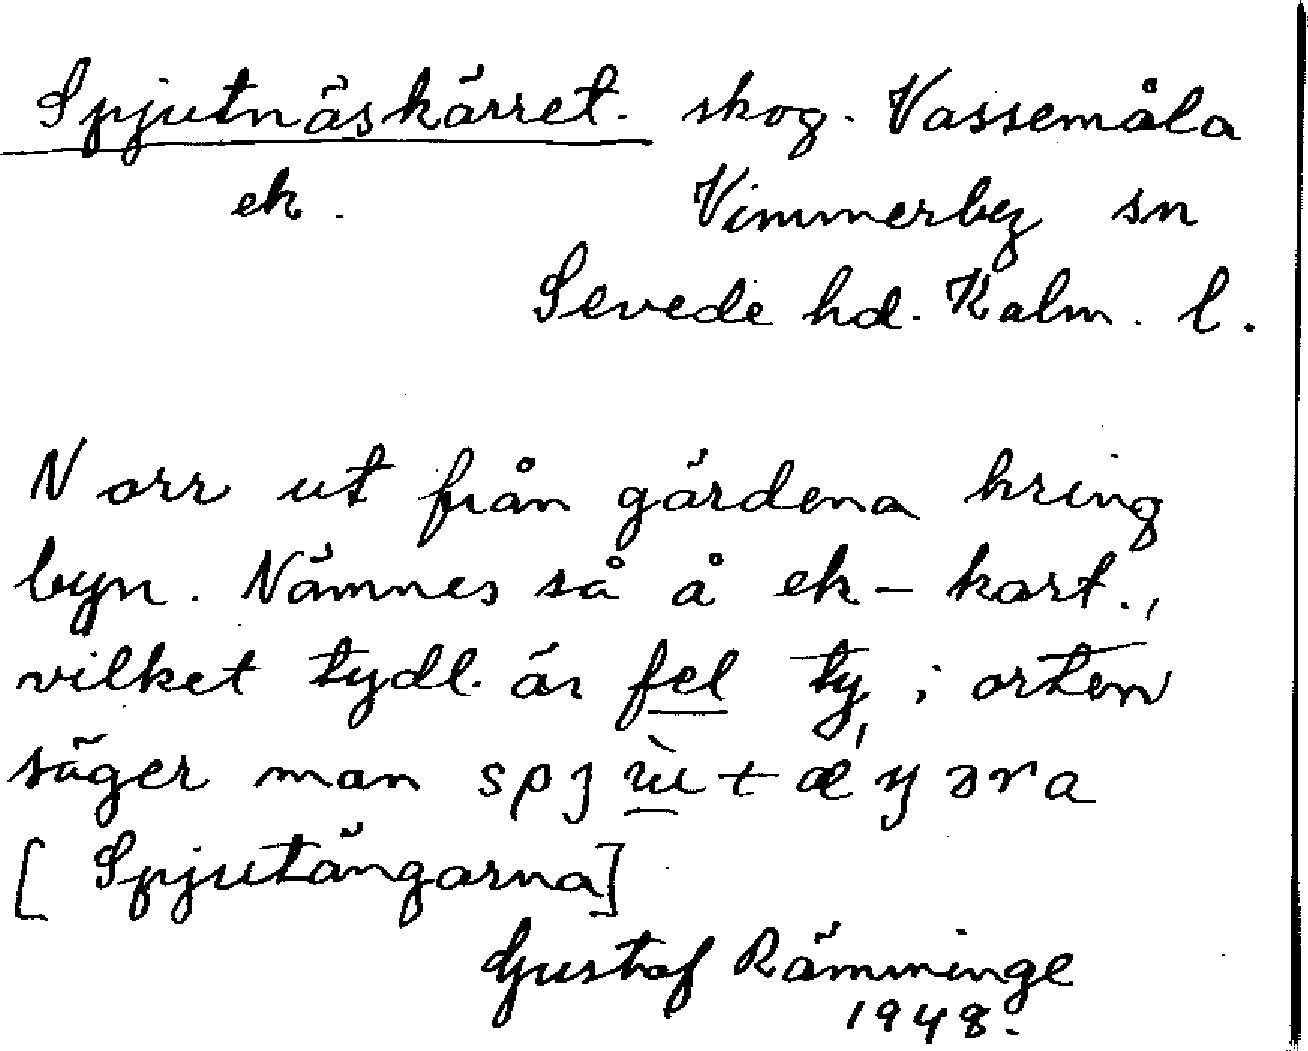 Spjutnäskärret. skog. Vassemåla
ek. Vimmerby sn
Sevede hd. Kalm. l.
Norr ut från gärdena kring
byn. Nämnes så å ek-kart.,
vilket tydl. är fel ty i orten
säger man
[Spjutängarna]
Gustaf Rämminge
1948.